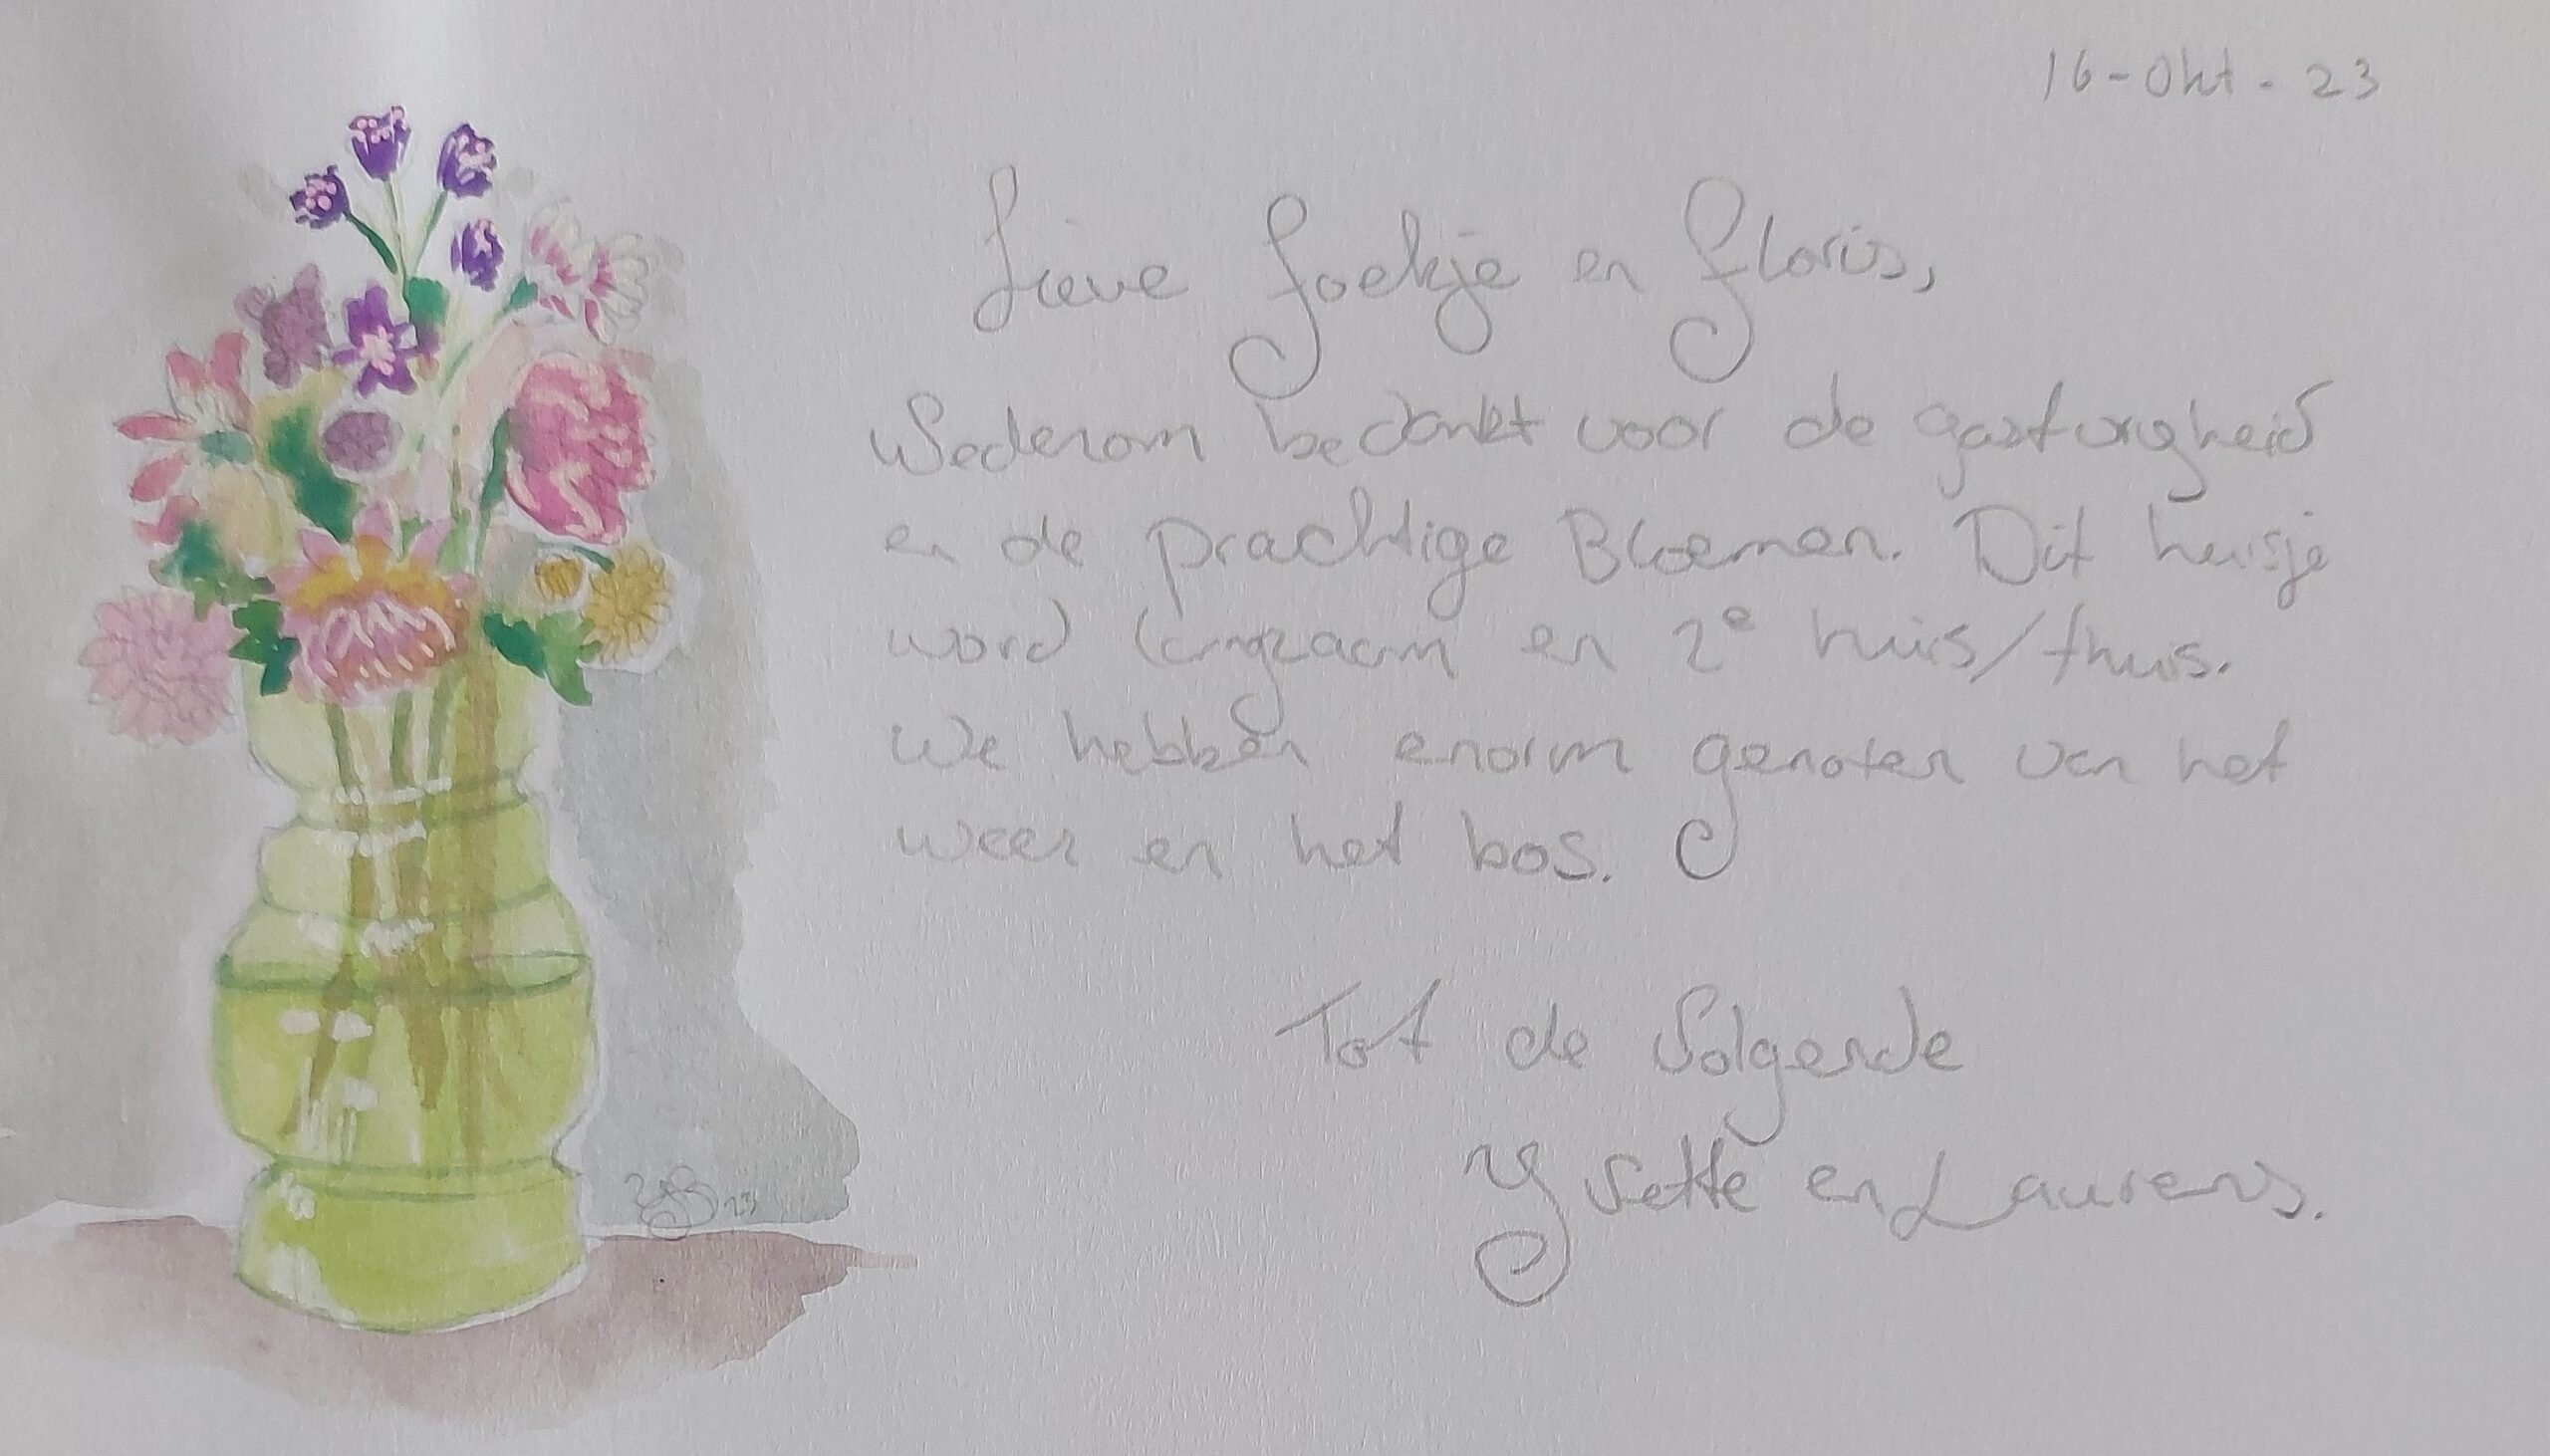 16-Okt-23
Lieve Foekje en Floris,
Wederom bedankt voor de gastvrijheid
en de prachtige Bloemen. Dit huisje
word langzaam en 2e huis/thuis.
We hebben enorm genoten van het
weer en het bos.
Tot de Volgende
Yvette en Laurens.
23